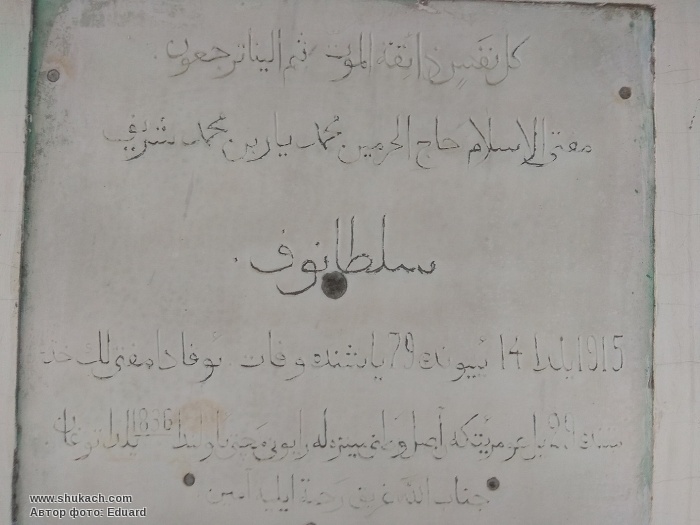 كل نفس ذائقة الموت ثم الينا ترجعون
مفتى الإسلام حاج الحرمين محمد يار بن محمد شريف
سلطانوف
1915 يلدا 14 ييونده 79 ياشنده وفات
سنه 29 يل 1836 يلدا توغان
جناب الله غريق رحمة ايليه آمين
www.shukach.com
Автор фото: Eduard